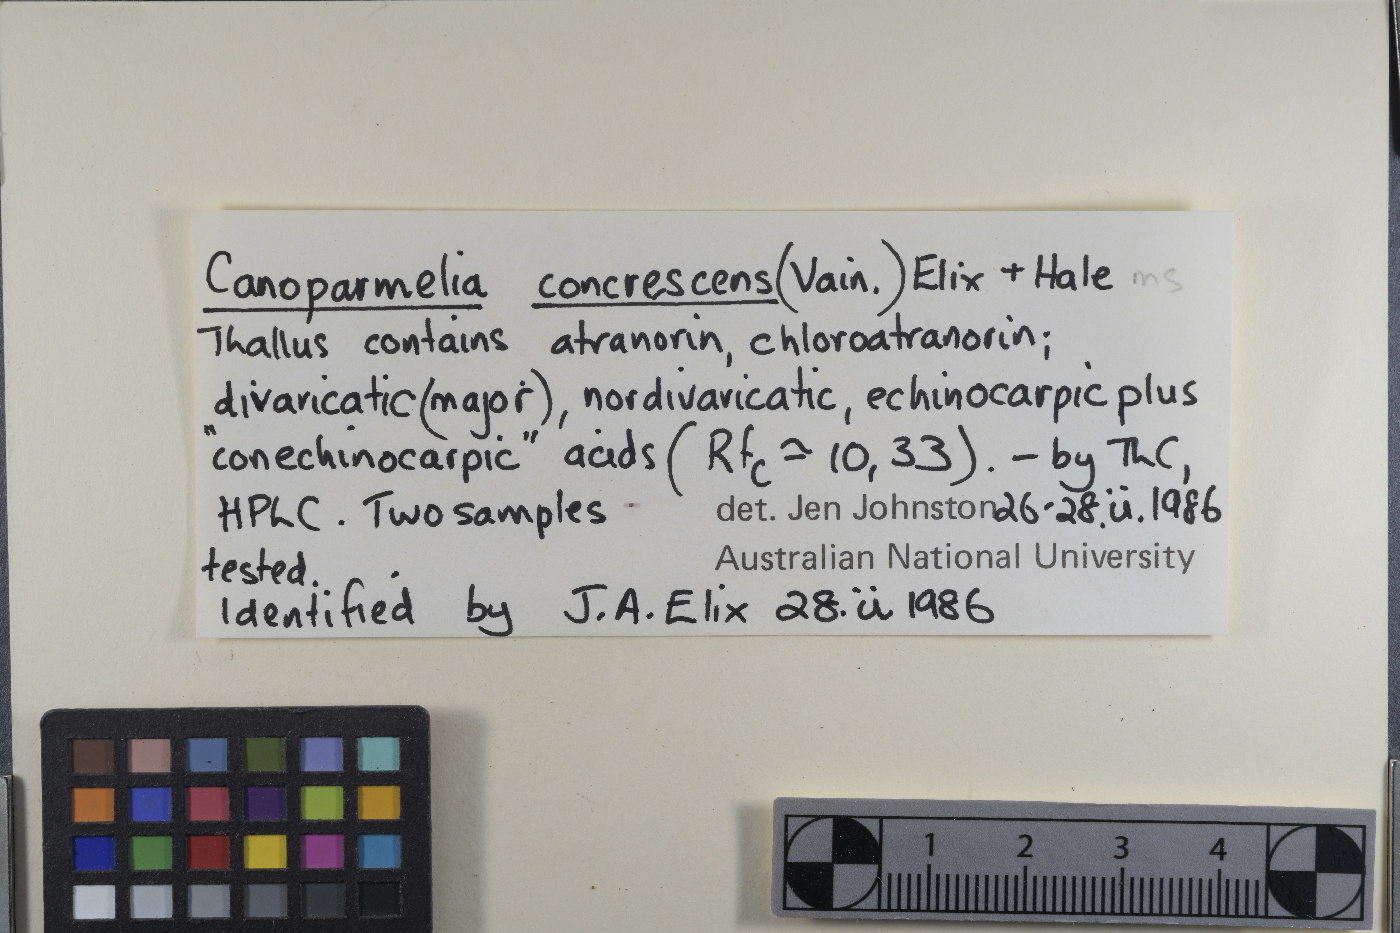 Canoparmelia concrescens (Vain.) Elix + Hale ms
Thallus contains atranorin, chloroatranorin;
divaricatic (major), nordivaricatic, echinocarpic plus
"conechinocarpic" acids (Rfc ≃ 10, 33). – by ThC,
HPLC. Two samples det. Jen Johnston 26-28.ii.1986
tested. Australian National University
Identified by J.A. Elix 28.ii 1986
1 2 3 4